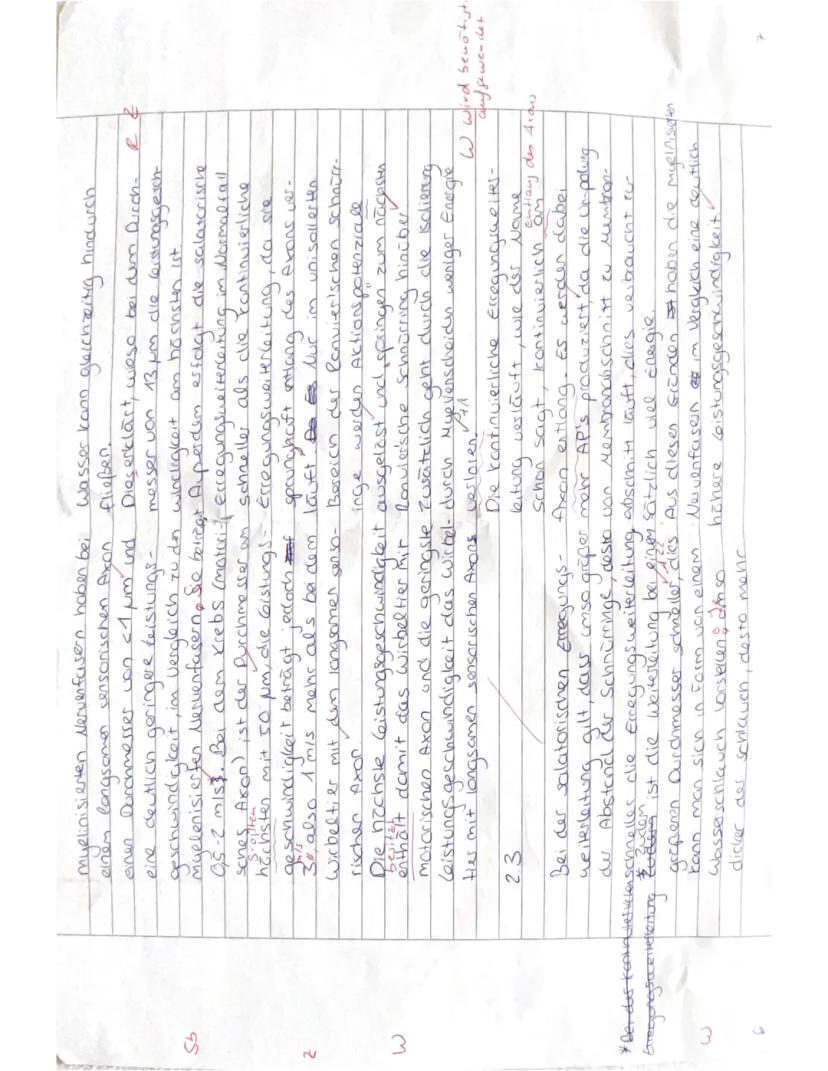 myelinisierten Nervenfasern haben bei
einem langsamen sensorischen Axon
einen Durchmesser von <1 µm und
eine deutlich geringere Leistungs-
geschwindigkeit, im Vergleich zu den
myelenisierten Nervenfasern. Sie beträgt
Sb
0,5-2 m/s. Bei dem Krebs (motori-
sches Axon) ist der Durchmesser am
größten
höchsten mit 50 µm, die Leistungs-
geschwindigkeit beträgt jedoch
m/s
z
3 also 1 m/s mehr als bei dem
Wirbeltier mit dem langsamen senso-
rischer Axon.
Die höchste Leistungsgeschwindigkeit
besitzt
W
enthält damit das Wirbeltier mit
motorischen Axon und die geringste
Leistungsgeschwindigkeit das Wirbel-
tier mit langsamen sensorischen Axons
2 3
Bei der salatorischen Erregungs-
weiterleitung gilt, dass umso größer
der Abstand der Schnürringe, desto
schneller die Erregungsweiterleitung
*Bei der kontinuierlichen
Erregungsweiterleitung
* Zudem
Zudem ist die Weiterleitung bei einem
größeren Durchmesser schneller, dies
kann man sich in Form von einem
W
Wasserschlauch vorstellen: umso
dicker der Schlauch, desto mehr
6
Wasser kann gleichzeitig hindurch
fließen.
Dies erklärt, wieso bei dem Durch-
R
messer von 13 µm die Leistungsgesch-
windigkeit am höchsten ist.
Außerdem erfolgt die salatorische
Erregungsweiterleitung im Normalfall
schneller als die kontinuierliche
Erregungsweiterleitung, da sie
sprunghaft entlang des Axons ver-
läuft. Nur im unisolierten
Bereich der Ranvier'schen Schnürr-
inge werden Aktionspotenziale
ausgelöst und springen zum nächsten
Ranvierische Schnürring hinüber.
Zusätzlich geht durch die Isolierung
durch Myelinscheiden weniger Energie
verloren.
W wird benötigt
aufgewendet
Die kontinuierliche Erregungsweites-
leitung verläuft, wie der Name
schon sagt, kontinuierlich am
entlang des Axons
Axon entlang. Es werden dabei
mehr AP's produziert, da die Umpolung
von Membranabschnitt zu Membran-
abschnitt läuft, dies verbraucht zu-
sätzlich viel Energie.
Aus diesen Gründen haben die myelinisierten
Nervenfasern im Vergleich eine deutlich
höhere Leistungsgeschwindigkeit
7